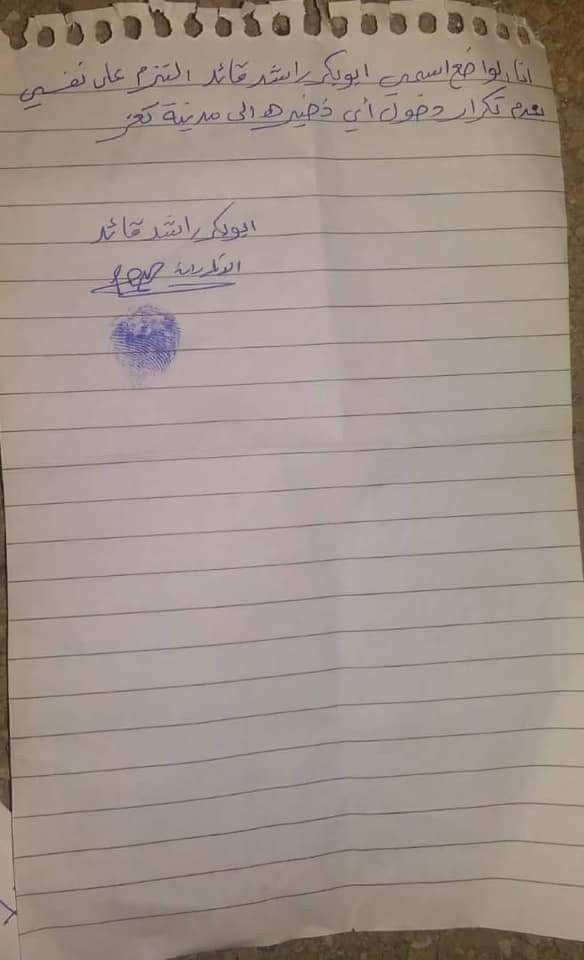 انا الواضع اسمي ابوبكر راشد قائد التزم على نفسي
بعدم تكرار دخول أي ذخيره الى مدينة تعز
ابوبكر راشد قائد